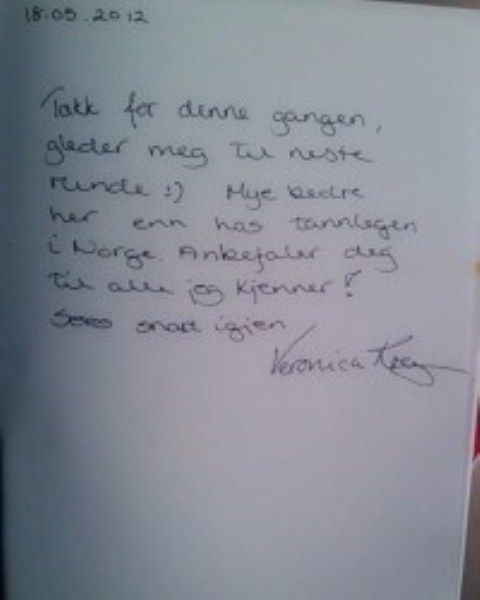 18.09.2012
Takk for denne gangen,
gleder meg til neste
runde :) Mye bedre
her enn hos tannlegen
i Norge. Anbefaler deg
til alle jeg kjenner!
Sees snart igjen
Veronica